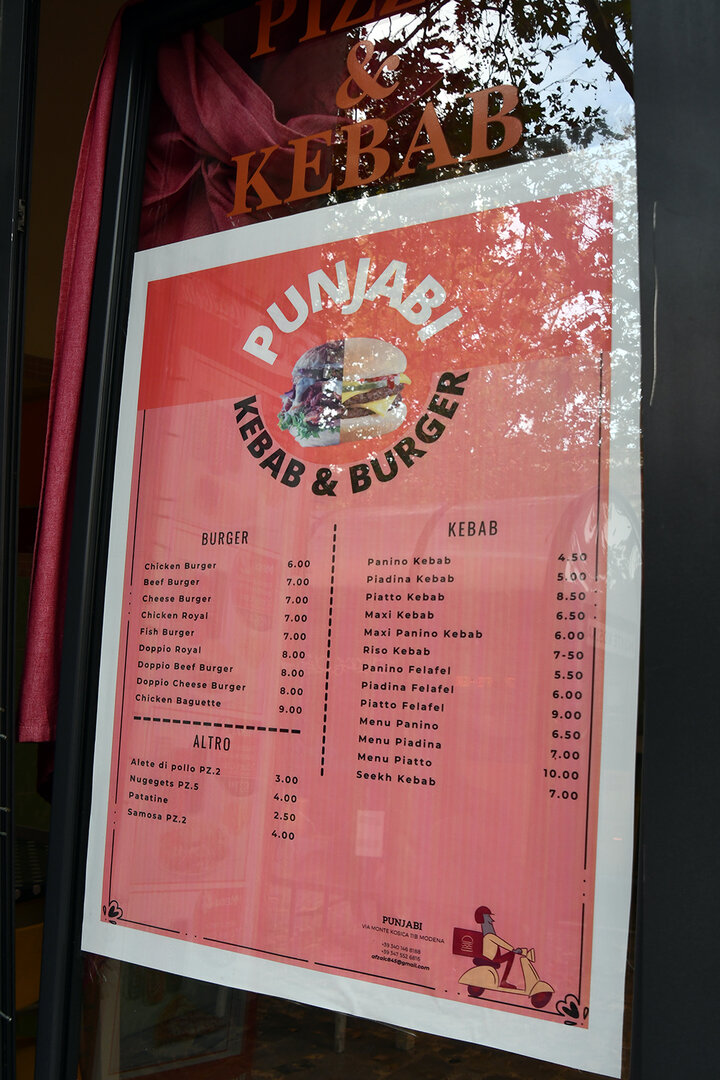 PIZZ
&
KEBAB
PUNJABI
KEBAB & BURGER
BURGER
Chicken Burger 6.00
Beef Burger 7.00
Cheese Burger 7.00
Chicken Royal 7.00
Fish Burger 7.00
Doppio Royal 8.00
Doppio Beef Burger 8.00
Doppio Cheese Burger 8.00
Chicken Baguette 9.00
ALTRO
Alete di pollo PZ.2 3.00
Nugegets PZ.5 4.00
Patatine 2.50
Samosa PZ.2 4.00
KEBAB
Panino Kebab 4.50
Piadina Kebab 5.00
Piatto Kebab 8.50
Maxi Kebab 6.50
Maxi Panino Kebab 6.00
Riso Kebab 7-50
Panino Felafel 5.50
Piadina Felafel 6.00
Piatto Felafel 9.00
Menu Panino 6.50
Menu Piadina 7.00
Menu Piatto 10.00
Seekh Kebab 7.00
PUNJABI
VIA MONTE KOSICA 11B MODENA
+39 340 146 8188
+39 347 552 6816
afzalc845@gmail.com